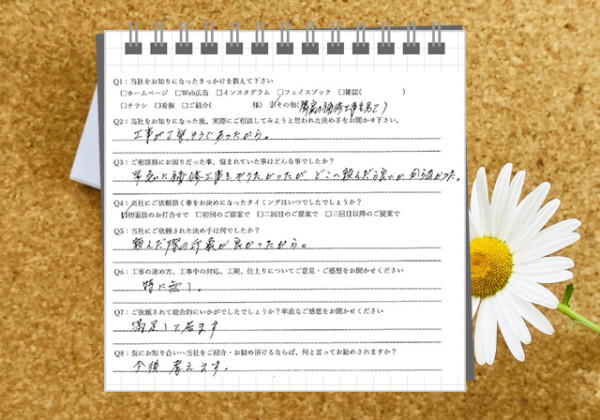 Q1：当社をお知りになったきっかけを教えて下さい
□ホームページ □Web広告 □インスタグラム □フェイスブック □雑誌( )
□チラシ □看板 □ご紹介( 様) ☑その他( の補修工事を見て)
Q2：当社をお知りになった後、実際にご相談してみようと思われた決め手をお聞かせ下さい。
工事が丁寧そうであったから。
Q3：ご相談前にお困りだった事、悩まれていた事はどんな事でしたか？
早急に補修工事をやりたかったが、どこへ頼んだら良いか 判らなかった。
Q4：当社にご依頼頂く事をお決めになったタイミングはいつでしたでしょうか？
☑初面談のお打合せで □初回のご提案で □二回目のご提案で □三回目以降のご提案で
Q5：当社にご依頼された決め手は何でしたか？
頼んだ際の印象が良かったから。
Q6：工事の進め方、工事中の対応、工期、仕上りについてご意見・ご感想をお聞かせください
特に無し。
Q7：ご依頼されて総合的にいかがでしたでしょうか？率直なご感想をお聞かせください
満足して居ます
Q8：仮にお知り合いへ当社をご紹介・お勧め頂けるならば、何と言ってお勧めされますか？
今後 考えます。